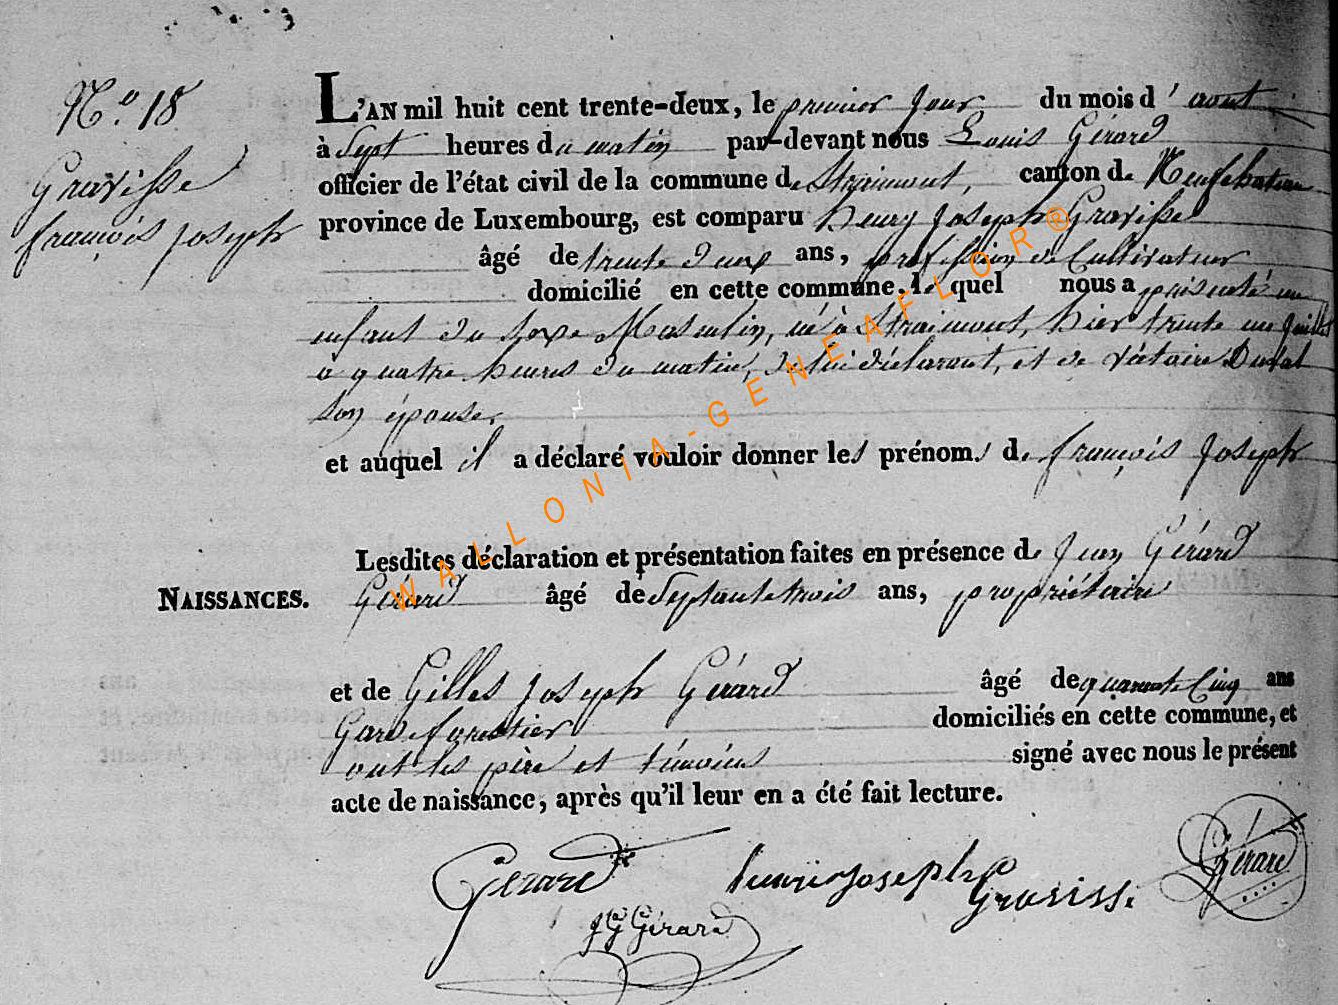 N.o 18
Gravisse
françois joseph
L'AN mil huit cent trente-deux, le premier jour du mois d'aout
à Sept heures du matin par-devant nous Louis Gérard
officier de l'état civil de la commune de Straimont, canton de Neufchateau
province de Luxembourg, est comparu henry Joseph Gravisse
âgé de trente deux ans, profession de Cultivateur
domicilié en cette commune, le quel nous a présenté un
enfant du sexe Masculin, né à Straimont, hier trente un Juillet
à quatre heures du matin, de lui déclarant, et de Victoire
son épouse,
et auquel il a déclaré vouloir donner les prénoms de françois Joseph
Lesdites déclaration et présentation faites en présence de Jean Gérard
NAISSANCES.
Gérard âgé de Septante trois ans, propriétaire
et de Gilles Joseph Gérard âgé de quarante Cinq ans
Garde forestier domiciliés en cette commune, et
ont les père et témoins signé avec nous le présent
acte de naissance, après qu'il leur en a été fait lecture.
Gerard henri joseph Gravisse Gérard
JG Gérard
WALLONIA-GENEAFLOR®